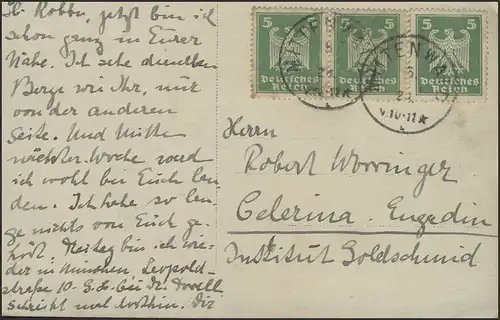 Lb. Robbu, jetzt bin ich
schon ganz in Eurer
Nähe. Ich sehe dieselben
Berge wie Ihr, nur
von der anderen
Seite. Und Mitte
nächster Woche werd
ich wohl bei Euch lan
den. Ich habe so lan-
ge nichts von Euch ge-
hört. Freitag bin ich wie-
der in München, Leopold-
straße 10 G.H. bei Dr.
Schreibt mal dorthin. Die
5 5 5
Deutsches Reich Deutsches Reich Deutsches Reich
MITTENWALD
V.10-11
MITTENWALD
V.10-11
Herrn
Robert Worringer
Celerina. Engadin
Institut Goldschmid